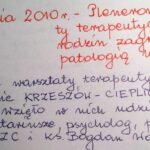 nia 2010 r. - Plenerow
ty terapeutyc
rodzin zag
patologią u
warsztaty terapeuty
ie KRZESZÓW - CIEPLIC
wzięło w nich udzi
tariusze, psycholog, p
ZC i ks. Bogdan